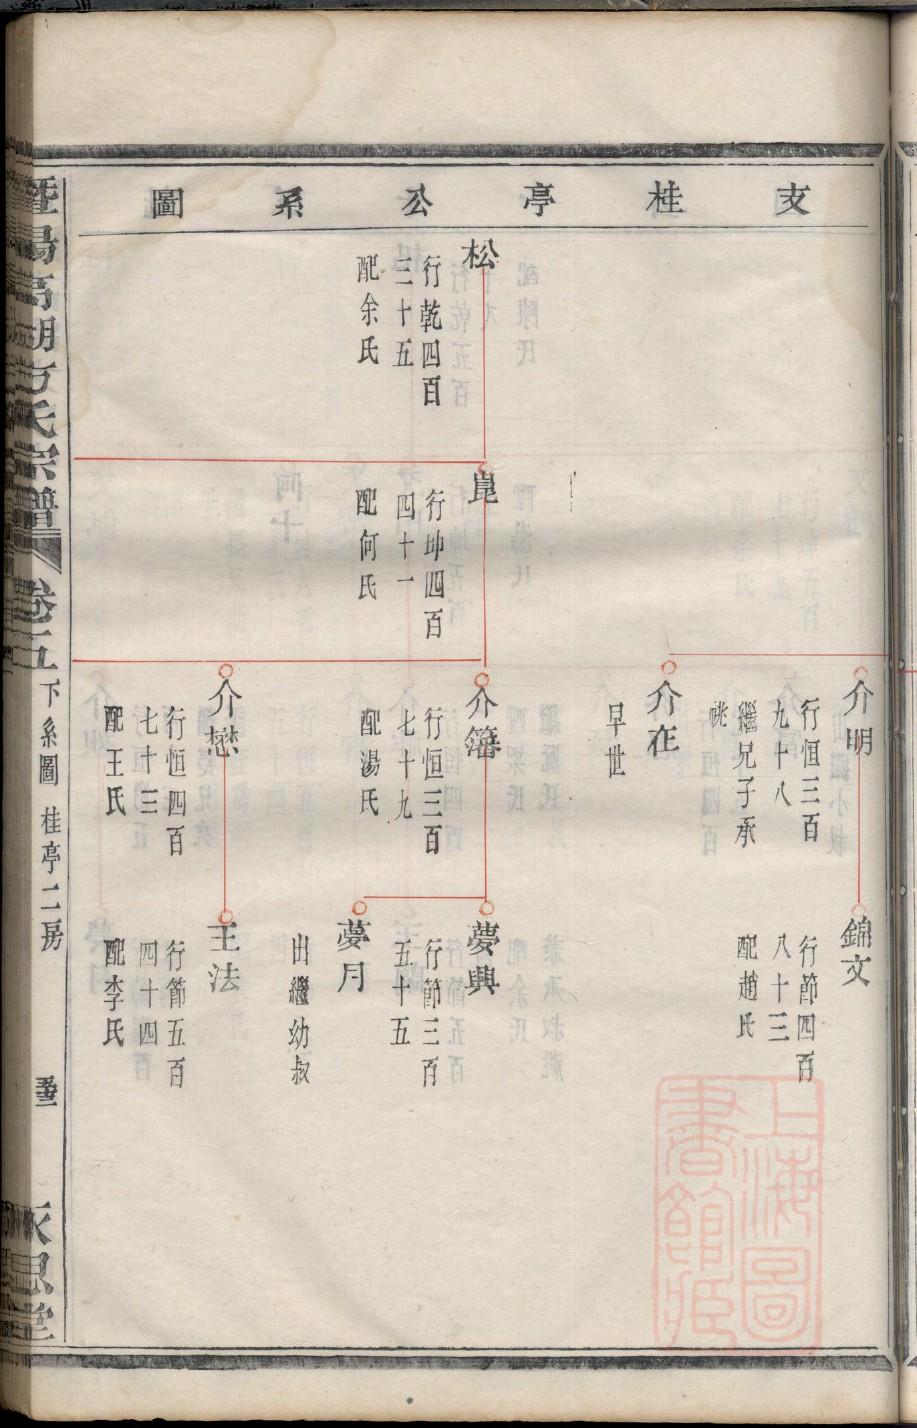 文桂亭公系圖
松
行乾四百
三十五
配余氏
崑
行坤四百
四十一
配何氏
介明
行恒三百
九十八
繼兄子承
祧
介在
早世
介籓
行恒三百
七十九
配湯氏
介懋
行恒四百
七十三
配王氏
錦文
行節四百
八十三
配趙氏
夢興
行節三百
五十五
夢月
出繼幼叔
王法
行節五百
四十四
配李氏
暨陽高湖方氏宗譜
卷五
下系圖 桂亭二房
永思堂
上海圖
書館藏